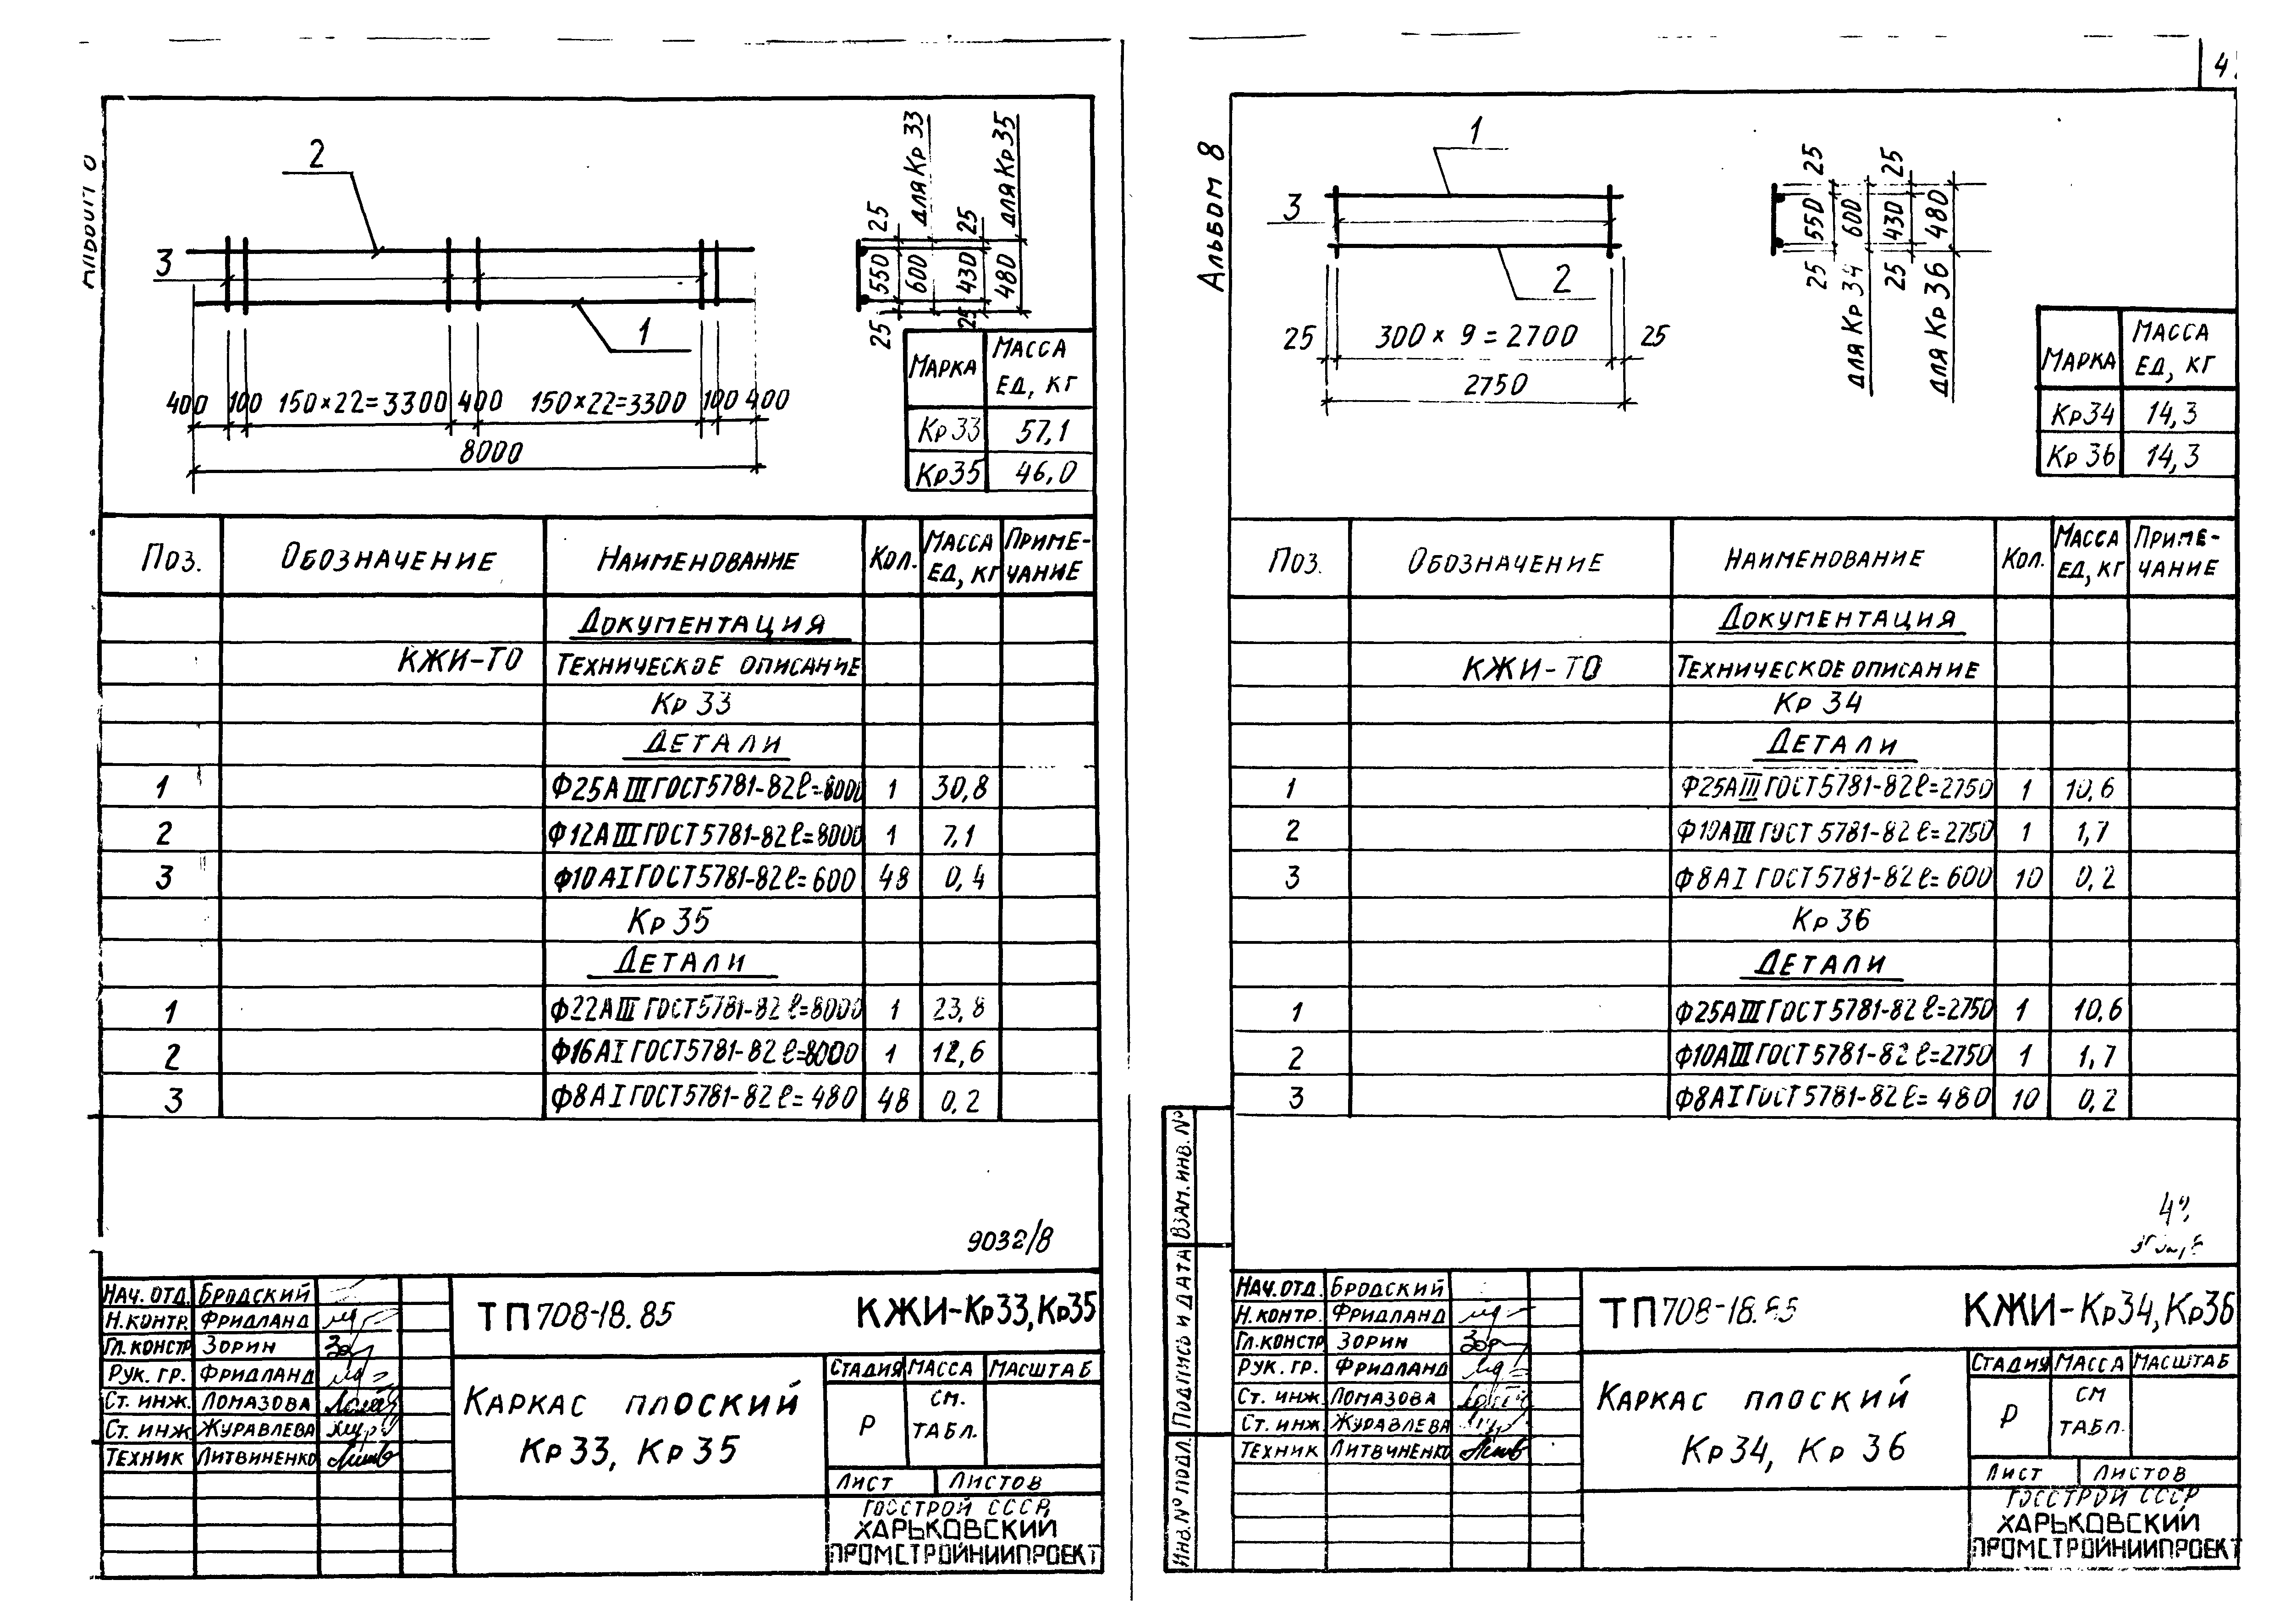 Альбом 8
2
3
1
400 100 150×22=3300 400 150×22=3300 100 400
8000
25 550 25
600 для Кр 33
25 430 25
480 для Кр35
Марка Масса ед, кг
Кр33 57,1
Кр35 46,0
Поз. Обозначение Наименование Кол. Масса ед, кг Примечание
Документация
КЖИ-ТО Техническое описание
Кр 33
Детали
1 Ф25АIII ГОСТ5781-82 ℓ=8000 1 30,8
2 Ф12АIII ГОСТ5781-82 ℓ=8000 1 7,1
3 Ф10АI ГОСТ5781-82 ℓ=600 48 0,4
Кр 35
Детали
1 Ф22АIII ГОСТ5781-82 ℓ=8000 1 23,8
2 Ф16АI ГОСТ5781-82 ℓ=8000 1 12,6
3 Ф8АI ГОСТ5781-82 ℓ=480 48 0,2
9032/8
Нач. отд. Бродский
Н.контр. Фридланд
Гл.констр Зорин
Рук. гр. Фридланд
Ст. инж. Ломазова
Ст. инж Журавлева
Техник Литвиненко
ТП 708-18.85 КЖИ-Кр33,Кр35
Каркас плоский
Кр33, Кр35
Стадия Масса Масштаб
Р см. табл.
Лист Листов
ГОССТРОЙ СССР,
ХАРЬКОВСКИЙ
ПРОМСТРОЙНИИПРОЕКТ
4
Альбом 8
1
3
2
25 300 × 9 = 2700 25
2750
25 550 25
для Кр 34 600
25 430 25
для Кр 36 480
Марка Масса ед, кг
Кр34 14,3
Кр 36 14,3
Поз. Обозначение Наименование Кол. Масса ед, кг Примечание
Документация
КЖИ-ТО Техническое описание
Кр 34
Детали
1 Ф25АIII ГОСТ5781-82 ℓ=2750 1 10,6
2 Ф10АIII ГОСТ5781-82 ℓ=2750 1 1,7
3 Ф8АI ГОСТ5781-82 ℓ=600 10 0,2
Кр 36
Детали
1 Ф25АIII ГОСТ5781-82 ℓ=2750 1 10,6
2 Ф10АIII ГОСТ5781-82 ℓ=2750 1 1,7
3 Ф8АI ГОСТ5781-82 ℓ=480 10 0,2
Взам. инв. №
Подпись и дата
Инв. № подл.
Нач. отд. Бродский
Н.контр. Фридланд
Гл.констр Зорин
Рук. гр. Фридланд
Ст. инж. Ломазова
Ст. инж Журавлева
Техник Литвиненко
ТП 708-18.85 КЖИ-Кр34,Кр36
Каркас плоский
Кр34, Кр 36
Стадия Масса Масштаб
Р см табл.
Лист Листов
ГОССТРОЙ СССР
ХАРЬКОВСКИЙ
ПРОМСТРОЙНИИПРОЕКТ